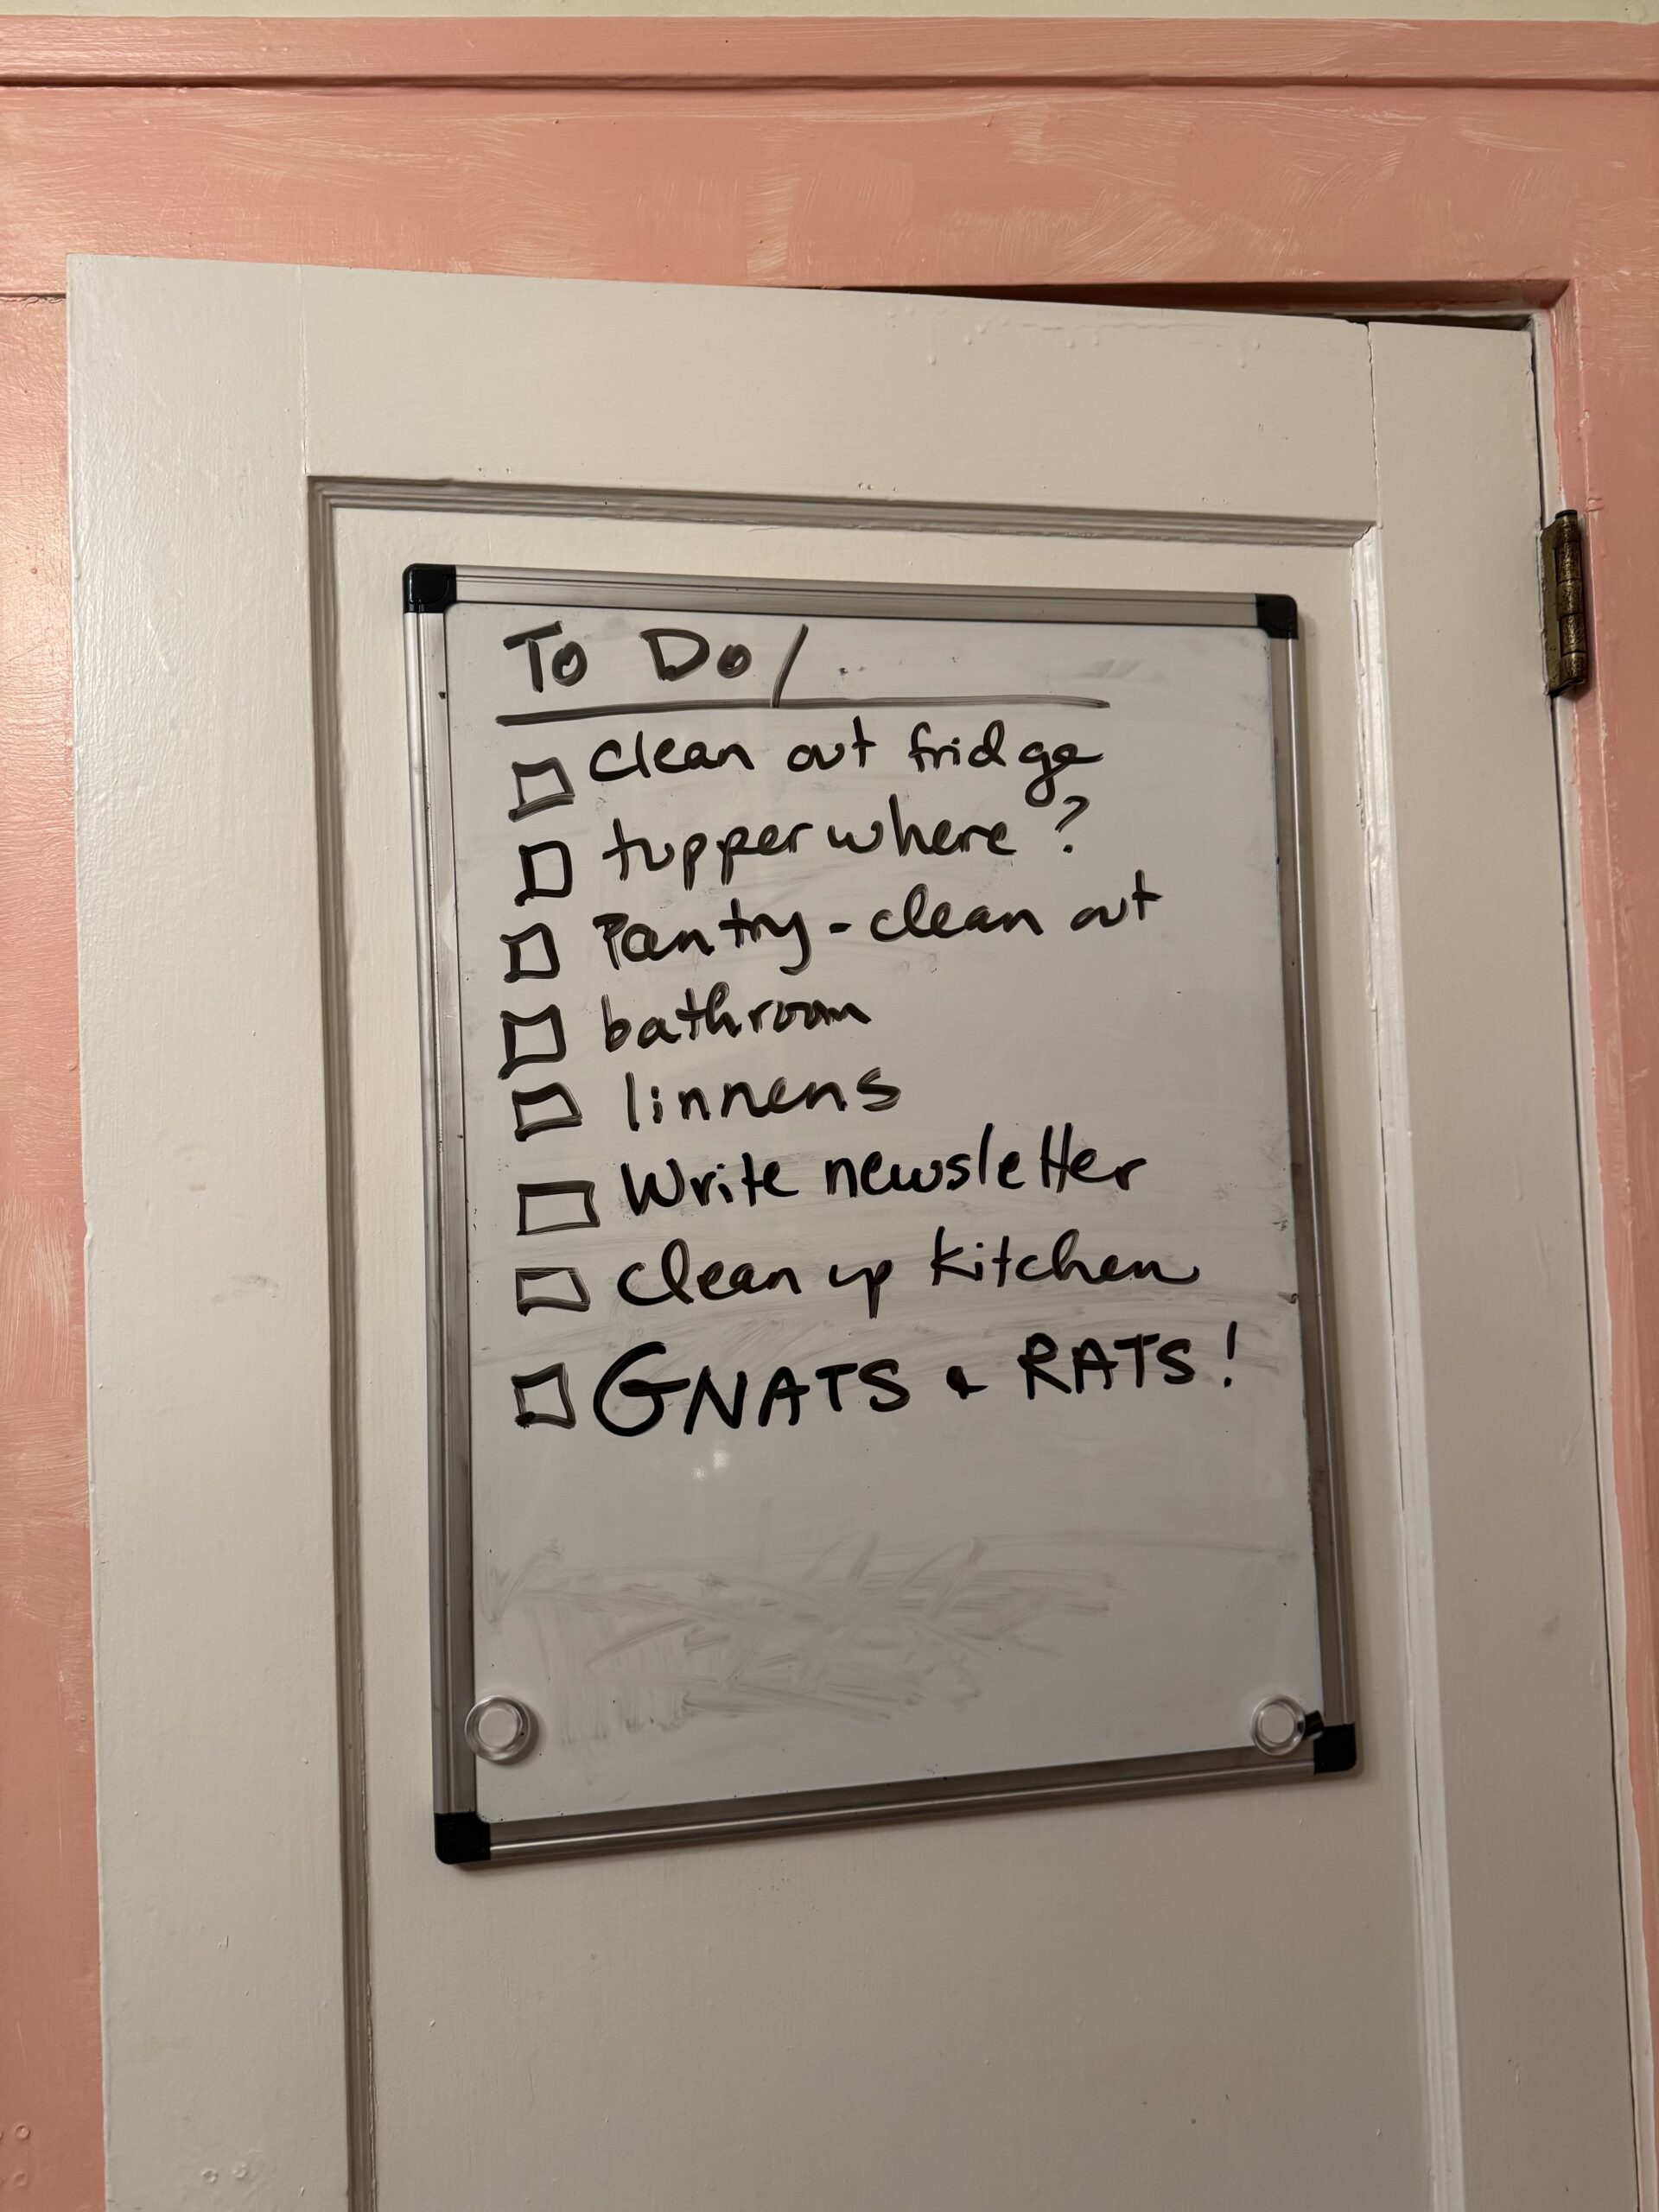 To Do/
clean out fridge
tupperwhere?
Pantry - clean out
bathroom
linnens
Write newsletter
Clean up kitchen
GNATS & RATS!